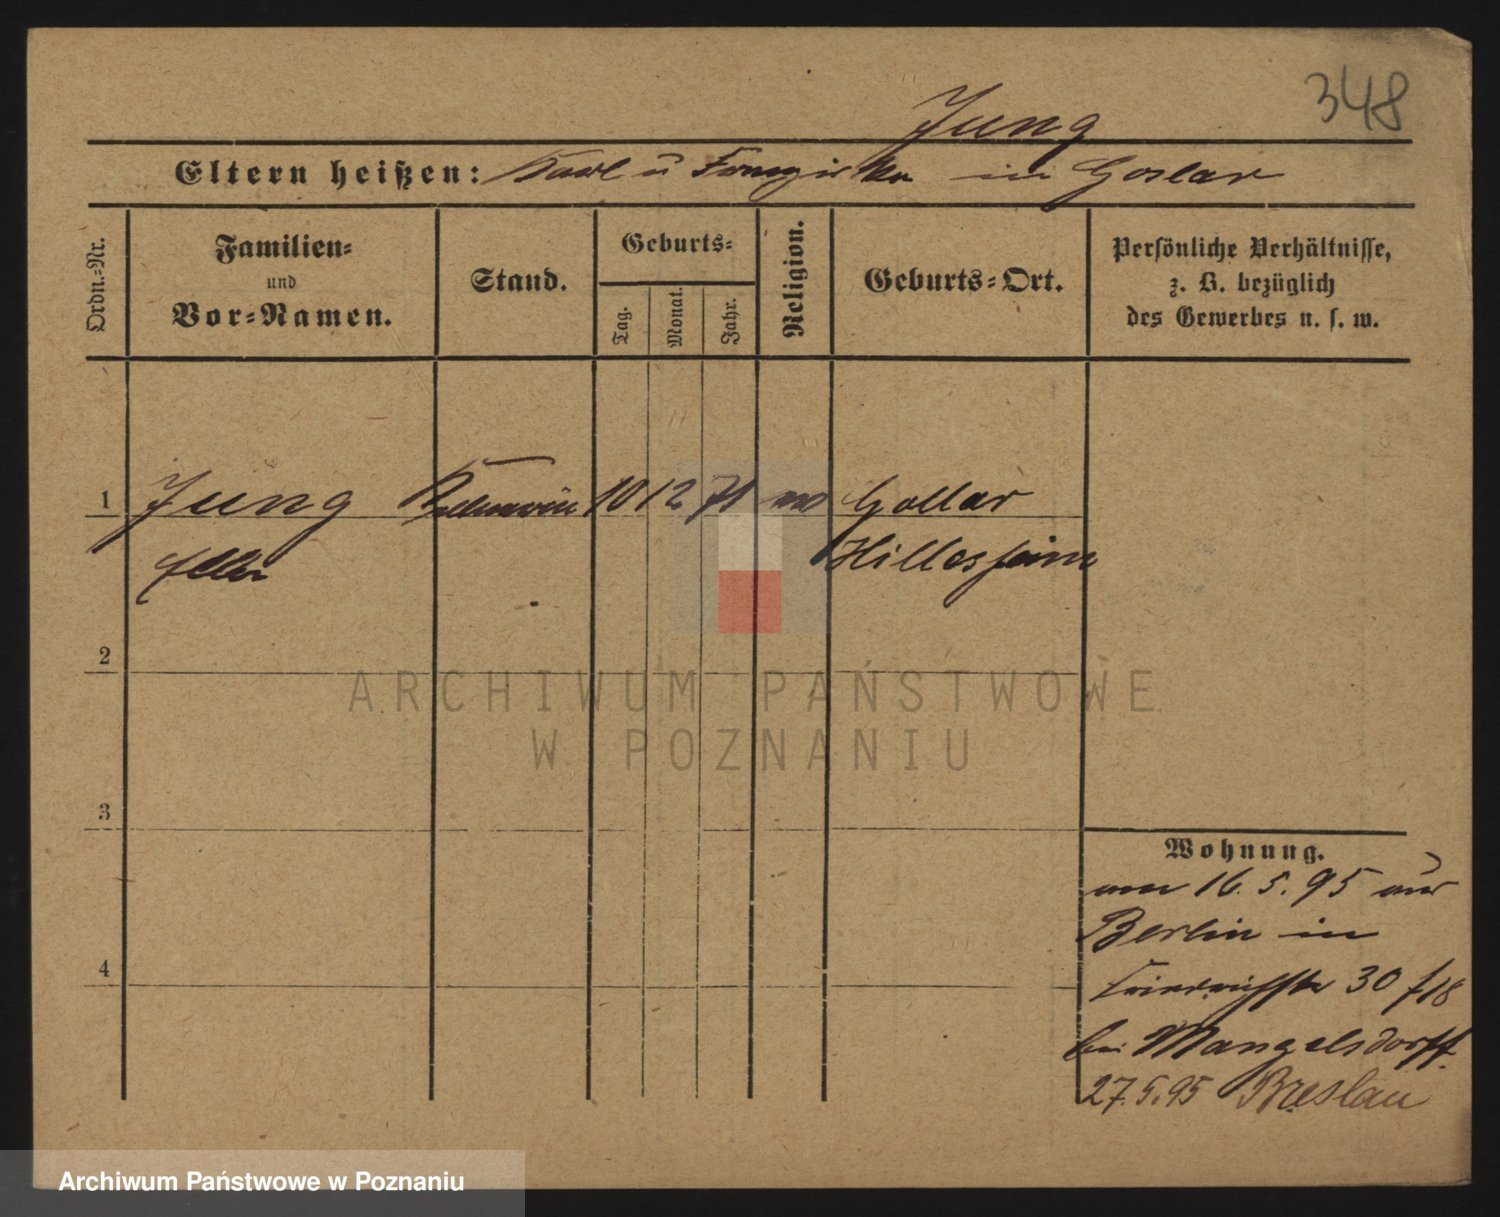 348
Jung
Eltern heißen: Karl u Franziska in Goslar
Ordn.=Nr.
Familien=
und
Vor=Namen.
Stand.
Geburts=
Tag.
Monat.
Jahr.
Religion.
Geburts=Ort.
Persönliche Verhältnisse,
z. B. bezüglich
des Gewerbes u. s. w.
1 Jung Kellnerin 10 12 71 Gollar
Hillesheim
2
3
4
Wohnung.
16.5.95 aus
Berlin in
Friedrichstr 30
bei Mangelsdorff
27.5.95 Breslau
ARCHIWUM PAŃSTWOWE
W POZNANIU
Archiwum Państwowe w Poznaniu